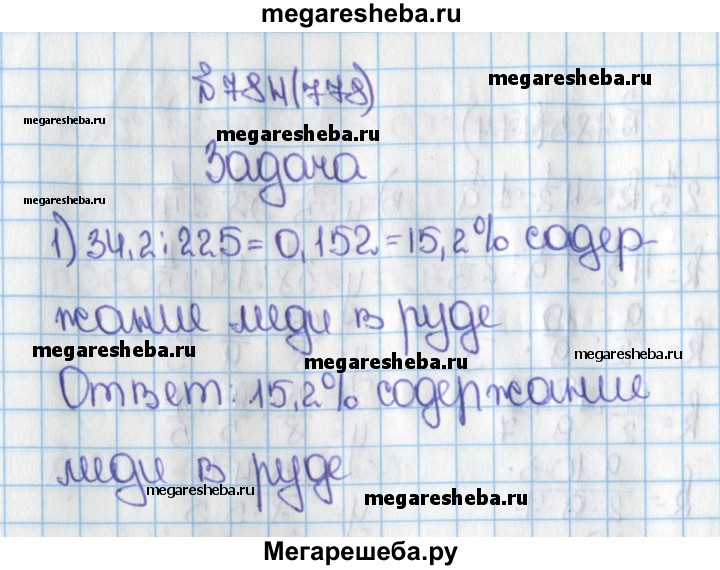 megaresheba.ru
№ 784(778)
megaresheba.ru
megaresheba.ru
megaresheba.ru
Задача
megaresheba.ru
1) 34,2:225=0,152=15,2% содер-
жание меди в руде
megaresheba.ru
megaresheba.ru
megaresheba.ru
Ответ: 15,2% содержание
меди в руде
megaresheba.ru
megaresheba.ru
Мегарешеба.ру